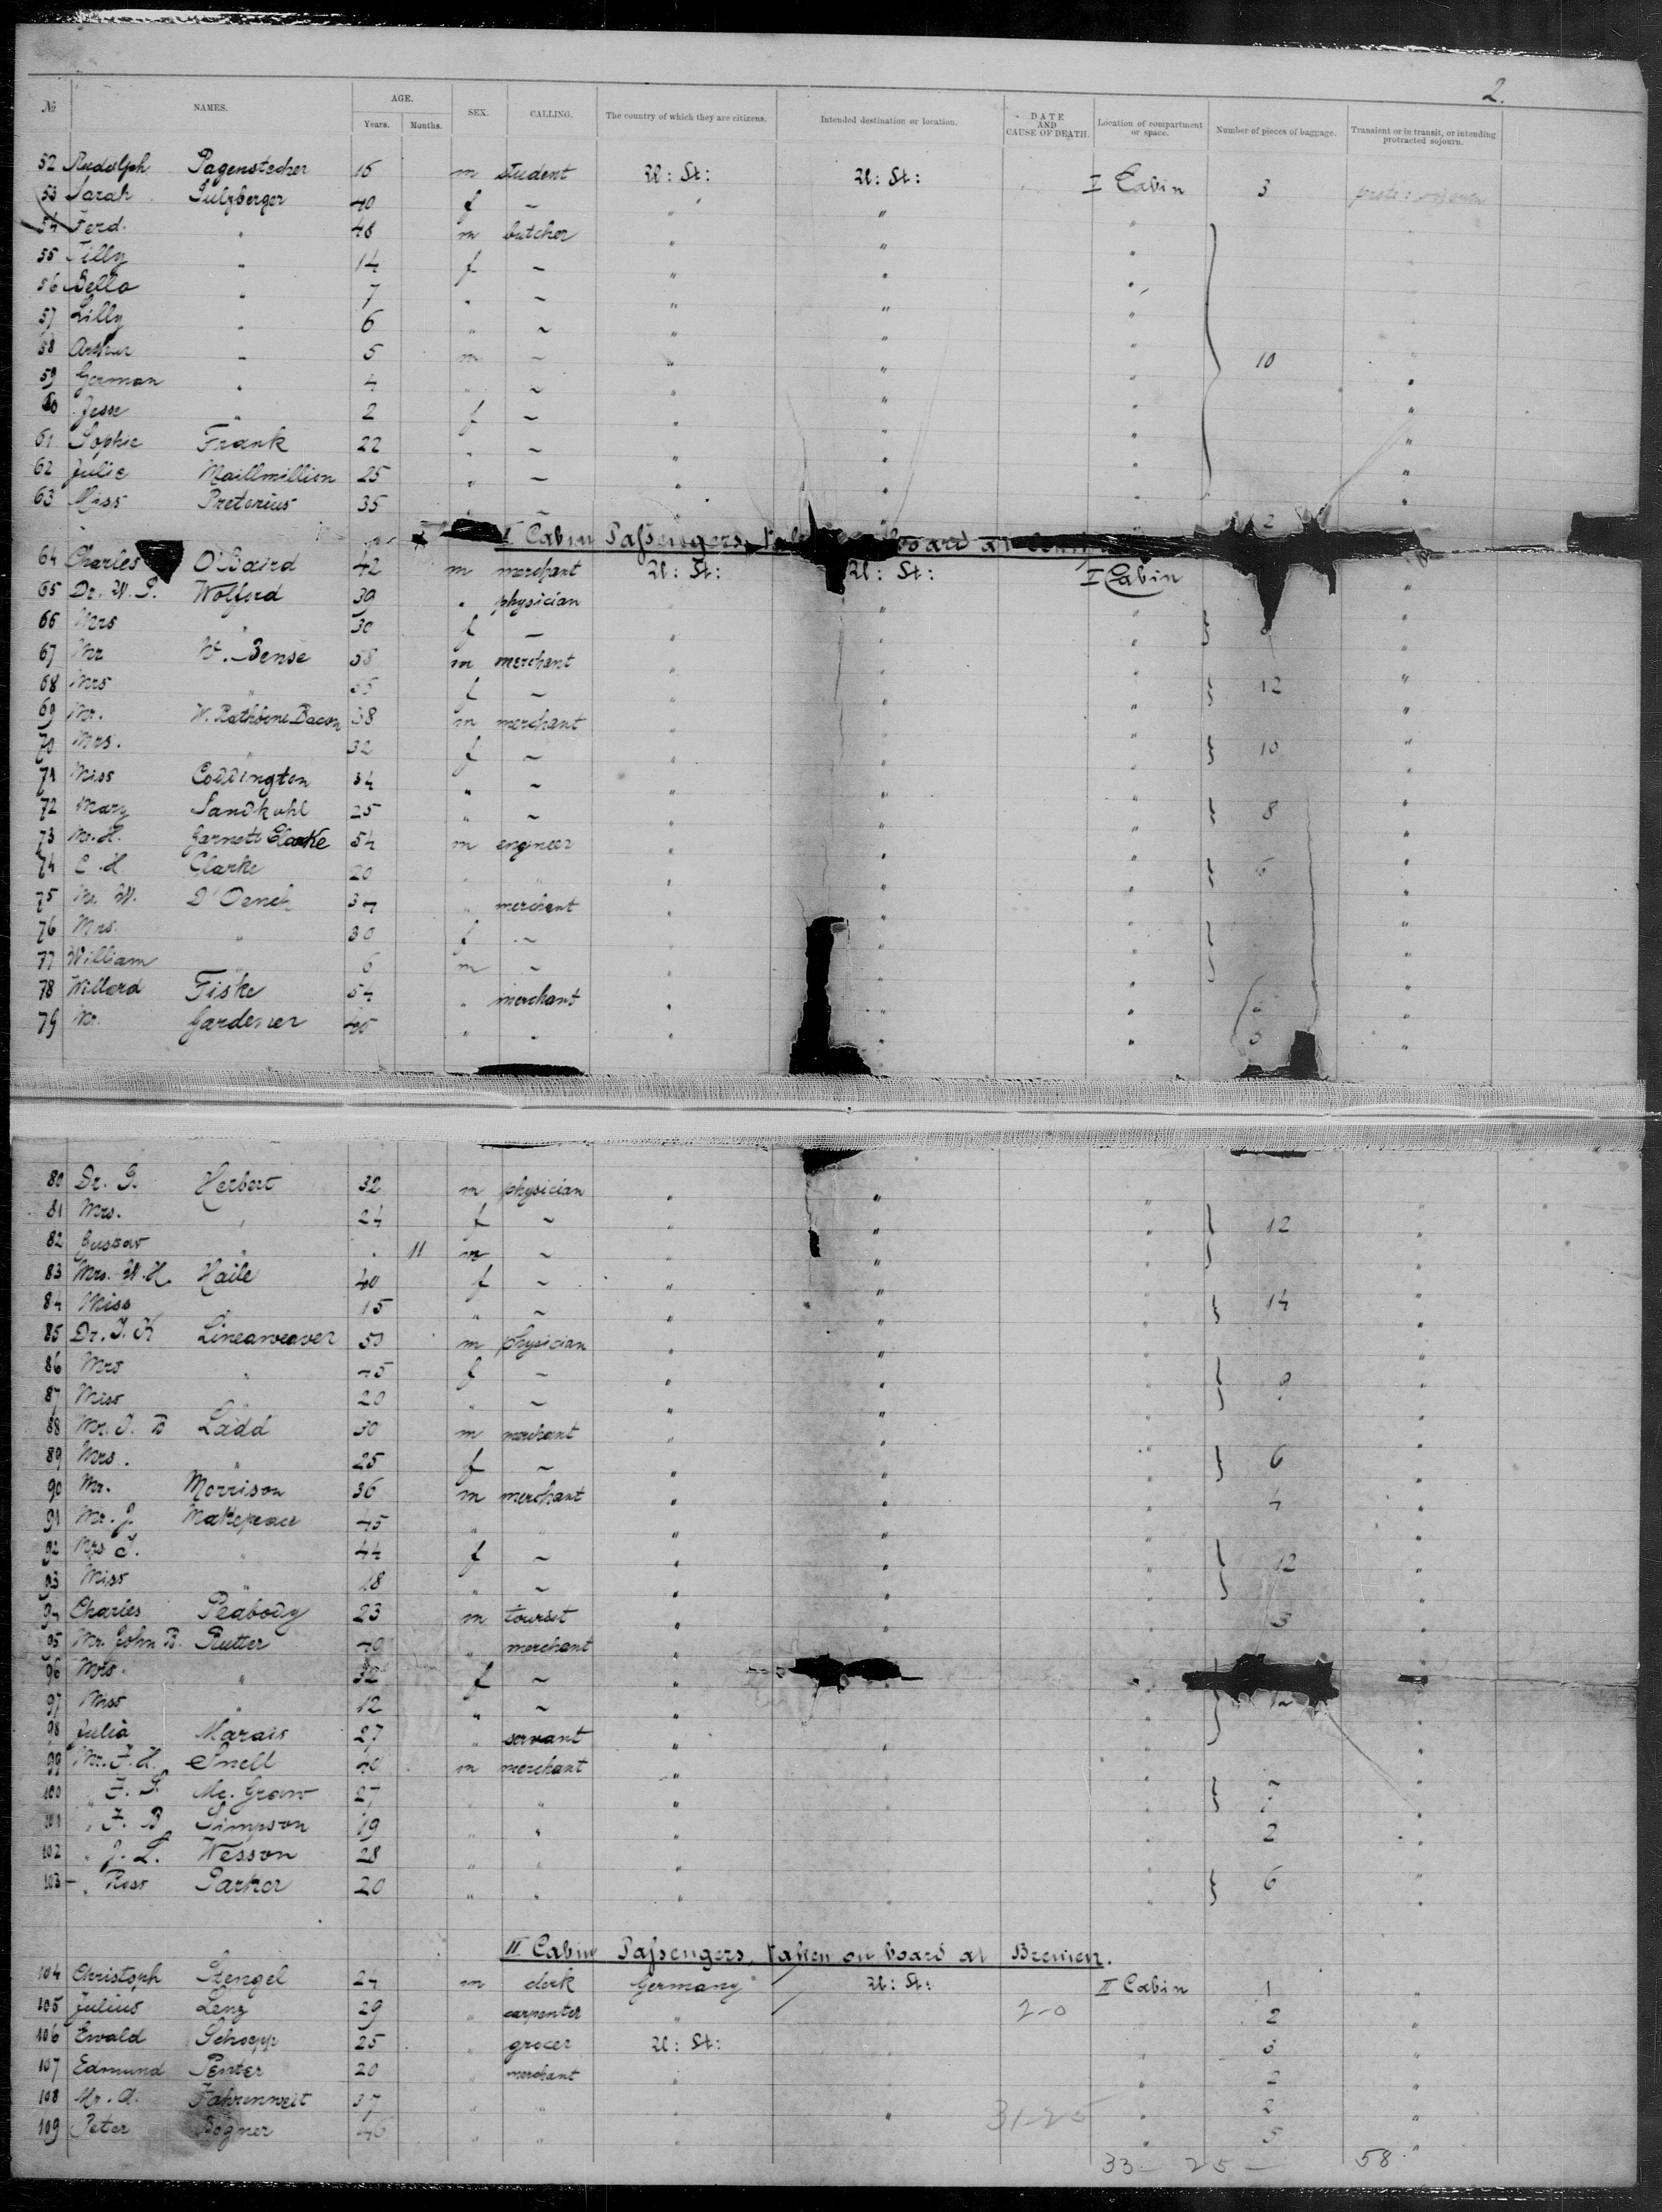 2.
№ NAMES. AGE. Years. Months. SEX. CALLING. The country of which they are citizens. Intended destination or location. DATE AND CAUSE OF DEATH. Location of compartment or space. Number of pieces of baggage. Transient or in transit, or intending protracted sojourn.
52 Rudolph Pagenstecher 16 m student U: St: U: St: I Cabin 3
53 Sarah Sulzberger 40 f ~ " " "
54 Ferd. " 48 m butcher " " "
55 Tilly " 14 f ~ " " "
56 Bella " 7 " ~ " " "
57 Lilly " 6 " ~ " " "
58 Arthur " 5 m ~ " " " 10 "
59 German " 4 " ~ " " " "
60 Jesse " 2 f ~ " " " "
61 Sophie Frank 22 " ~ " " " "
62 Julie Maillmillion 25 " ~ " " " "
63 Miss Pretorius 35 " ~ " " " 2 "
I Cabin Passengers board at
64 Charles O'Baird 42 m merchant U: St: U: St: I Cabin "
65 Dr. W. S. Wolford 39 " physician " " " "
66 Mrs " 30 f ~ " " " "
67 Mr W. Bense 58 m merchant " " " "
68 Mrs " 35 f ~ " " " 12 "
69 Mr. W. Rathbone Bacon 38 m merchant " " " "
70 Mrs. " 32 f ~ " " " 10 "
71 Miss Coddington 34 " ~ " " " "
72 Mary Sandkuhl 25 " ~ " " " 8 "
73 Mr. H. Garnett Clarke 54 m engineer " " " "
74 C. H Clarke 20 " " " " " 6 "
75 Mr. W. D'Oench 37 " merchant " " " "
76 Mrs. " 30 f ~ " " " "
77 William " 6 m ~ " " " "
78 Willard Fiske 54 " merchant " " " "
79 Mr. Gardener 45 " " " " " "
80 Dr. G. Herbert 32 m physician " " " "
81 Mrs. " 24 f ~ " " " 12 "
82 Gustav " . 11 m ~ " " " "
83 Mrs. W. H. Haile 40 f ~ " " " "
84 Miss " 15 " ~ " " " 14 "
85 Dr. I. K Lineaweaver 50 m physician " " " "
86 Mrs " 45 f ~ " " " 9 "
87 Miss " 20 " ~ " " " "
88 Mr. I. B Ladd 30 m merchant " " " "
89 Mrs. " 25 f ~ " " " 6 "
90 Mr. Morrison 36 m merchant " " " 4 "
91 Mr. J. Makepeace 45 " " " " " "
92 Mrs J. " 44 f ~ " " " 12 "
93 Miss " 18 " ~ " " " "
94 Charles Peabody 23 m tourist " " " 3 "
95 Mr. John B. Rutter 40 " merchant " " " "
96 Mrs. " 32 f ~ " " "
97 Miss " 12 " ~ " " " 12 "
98 Julia Marais 27 " servant " " " "
99 Mr. F. H. Snell 40 m merchant " " " "
100 " F. S. Mc. Graw 27 " " " " " 7 "
101 " F. B. Simpson 19 " " " " " 2 "
102 " J. L. Wesson 28 " " " " " "
103 " Ross Parker 20 " " " " " 6 "
II Cabin Passengers, taken on board at Bremen.
104 Christoph Stengel 24 m clerk Germany U: St: II Cabin 1 "
105 Julius Lenz 29 " carpenter " " 2-0 " 2 "
106 Ewald Schopp 25 " grocer U: St: " " 3 "
107 Edmund Penter 20 " merchant " " " 2 "
108 Mr. A. Fahrenweit 37 " " " " " 2 "
109 Peter Bogner 46 " " " " 31-25 " 5 "
33- 25- 58